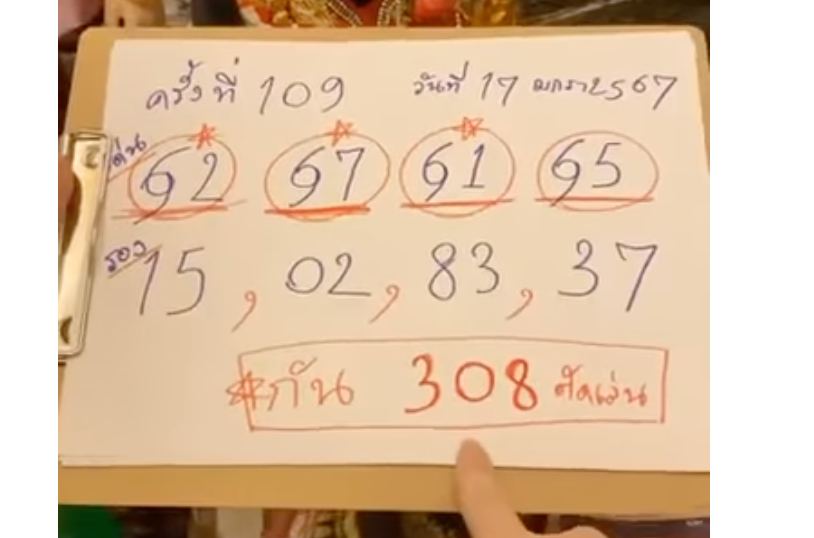 ครั้งที่ 109 วันที่ 17 มกรา 2567
เด่น 62 67 61 65
รอง 15 , 02 , 83 , 37
กัน 308 ตัดเล่น